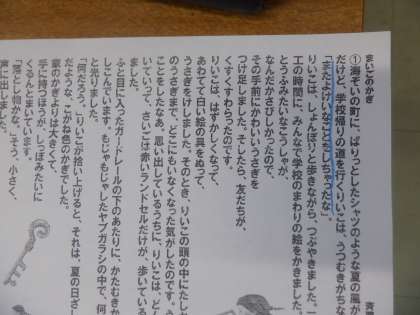 まいごのかぎ
斉
①海ぞいの町に、ぱりっとしたシャツのような夏の風が
だけど、学校帰りの道を行くりいこは、うつむきがちな
「またよけいなことをしちゃったな。」
りいこは、しょんぼりと歩きながら、つぶやきました。
工の時間に、みんなで学校のまわりの絵をかきました。
とうふみたいなこうしゃが、
なんだかさびしかったので、
その手前にかわいいうさぎを
つけ足しました。そしたら、友だちが、
くすくすわらったのです。
りいこは、はずかしくなって、
あわてて白い絵の具をぬって、
うさぎをけしました。そのとき、りいこの頭の中にたし
のうさぎまで、どこにもいなくなった気がしたのです。う
ことをしたなあ。思い出しているうちに、りいこは、ど
いていって、さいごは赤いランドセルだけが、歩いている
ました。
ふと目に入ったガードレールの下のあたりに、かたむきか
しこんでいます。もじゃもじゃしたヤブガラシの中で、何
と光りました。
「何だろう。」りいこが拾い上げると、それは、夏の日ざし
だような、こがね色のかぎでした。
家のかぎよりは大きくて、
手に持つほうが、しっぽみたいに
くるんとまいています。
「落とし物かな。」そう、小さく、
声に出しました